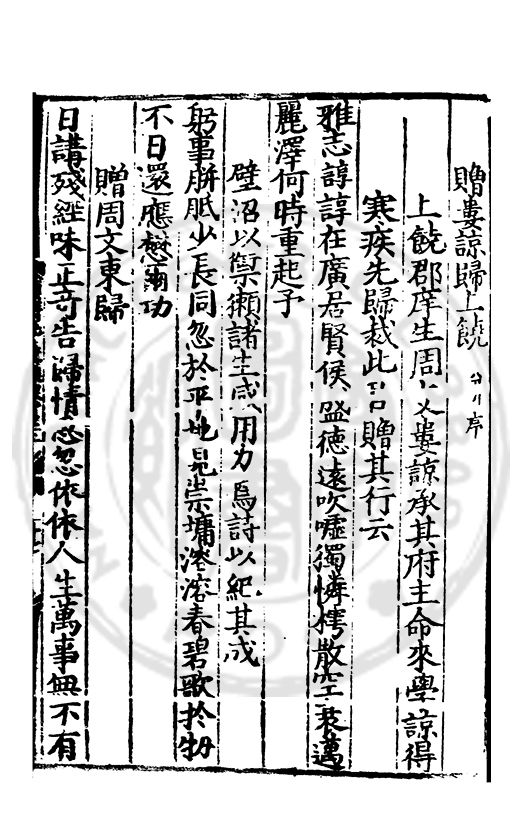 贈婁諒歸上饒 并序
上饒郡庠生周文婁諒承其府主命來學諒得
寒疾先歸裁此以贈其行云
雅志諄諄在廣居賢侯盛德遠吹噓獨憐樗散空衰邁
麗澤何時重起予
璧沼以禦瀨諸生咸用力焉詩以紀其成
躬事胼胝少長同忽於平地見崇墉溶溶春碧歌於牣
不日還應懋爾功
贈周文東歸
日講殘經味正奇告歸情思忽依依人生萬事無不有